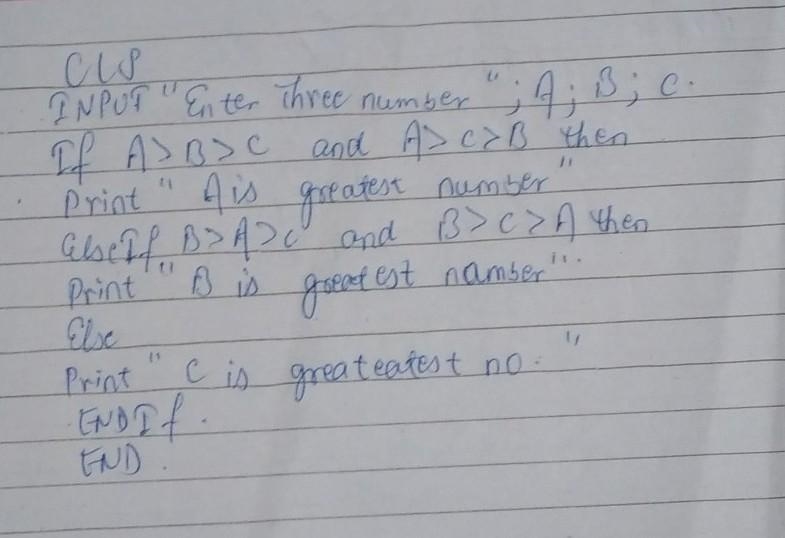 CLS
INPUT "Enter Three number"; A; B; C.
If A>B>C and A>C>B then
Print "A is greatest number"
ElseIf B>A>C and B>C>A then
Print "B is greatest namber".
Else
Print "C is greateatest no."
ENDIf.
END.